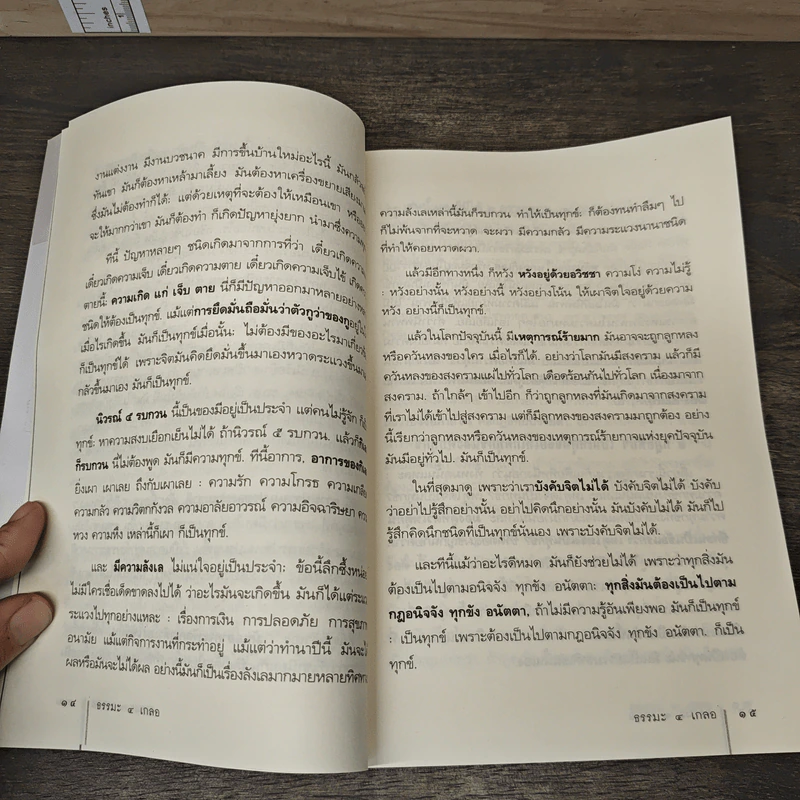 inches
งานแต่งงาน มีงานบวชนาค มีการขึ้นบ้านใหม่อะไรนี้ มันกลัวจะ
ทันเขา มันก็ต้องหาเหล้ามาเลี้ยง มันต้องหาเครื่องขยายเสียงมา
ซึ่งมันไม่ต้องทำก็ได้: แต่ด้วยเหตุที่จะต้องให้เหมือนเขา หรือ
จะให้มากกว่าเขา มันก็ต้องทำ ก็เกิดปัญหายุ่งยาก นำมาซึ่งความ
ทีนี้ ปัญหาหลายๆ ชนิดเกิดมาจากการที่ว่า เดี๋ยวเกิดความ
เดี๋ยวเกิดความเจ็บ เดี๋ยวเกิดความตาย เดี๋ยวเกิดความเจ็บไข้ เกิด
ตายนี้: ความเกิด แก่ เจ็บ ตาย นี้ก็มีปัญหาออกมาหลายอย่าง
ชนิดให้ต้องเป็นทุกข์. แม้แต่การยึดมั่นถือมั่นว่าตัวกูว่าของกูอยู่
เมื่อไรเกิดขึ้น มันก็เป็นทุกข์เมื่อนั้น: ไม่ต้องมีของอะไรมาเกี่ยว
ก็เป็นทุกข์ได้ เพราะจิตมันคิดยึดมั่นขึ้นมาเองหวาดระแวงขึ้น
กลัวขึ้นมาเอง มันก็เป็นทุกข์.
นิวรณ์ ๕ รบกวน นี้เป็นของมีอยู่เป็นประจำ แต่คนไม่รู้จัก ก็
ทุกข์: หาความสงบเยือกเย็นไม่ได้ ถ้านิวรณ์ ๕ รบกวน. แล้ว
ก็รบกวน นี้ไม่ต้องพูด มันก็มีความทุกข์. ทีนี้อาการ, อาการของ
ยิ่งเผา เผาเลย ถึงกับเผาเลย : ความรัก ความโกรธ ความเกลียด
ความกลัว ความวิตกกังวล ความอาลัยอาวรณ์ ความอิจฉาริษยา ความ
หวง ความหึง เหล่านี้ก็เผา ก็เป็นทุกข์.
และ มีความลังเล ไม่แน่ใจอยู่เป็นประจำ: ข้อนี้ลึกซึ้งหน่อย
ไม่มีใครเชื่อเด็ดขาดลงไปได้ ว่าอะไรมันจะเกิดขึ้น มันก็ได้แต่ระแวง
ระแวงไปทุกอย่างแหละ : เรื่องการเงิน การปลอดภัย การสุขภาพ
อนามัย แม้แต่กิจการงานที่กระทำอยู่ แม้แต่ว่าทำนาปีนี้ มันจะได้
ผลหรือมันจะไม่ได้ผล อย่างนี้มันก็เป็นเรื่องลังเลมากมายหลายทิศทาง
๑๔ ธรรมะ ๔ เกลอ
ความลังเลเหล่านี้มันก็รบกวน ทำให้เป็นทุกข์: ก็ต้องทนทำลืมๆ ไป
ก็ไม่พ้นจากที่จะหวาด จะผวา มีความกลัว มีความระแวงนานาชนิด
ที่ทำให้คอยหวาดผวา.
แล้วมีอีกทางหนึ่ง ก็หวัง หวังอยู่ด้วยอวิชชา ความโง่ ความไม่รู้
: หวังอย่างนั้น หวังอย่างนี้ หวังอย่างโน้น ให้เผาจิตใจอยู่ด้วยความ
หวัง อย่างนี้ก็เป็นทุกข์.
แล้วในโลกปัจจุบันนี้ มีเหตุการณ์ร้ายมาก มันอาจจะถูกลูกหลง
หรือควันหลงของใคร เมื่อไรก็ได้. อย่างว่าโลกมันมีสงคราม แล้วก็มี
ควันหลงของสงครามแผ่ไปทั่วโลก เดือดร้อนกันไปทั่วโลก เนื่องมาจาก
สงคราม. ถ้าใกล้ๆ เข้าไปอีก ก็ว่าถูกลูกหลงที่มันเกิดมาจากสงคราม
ที่เราไม่ได้เข้าไปสู่สงคราม แต่ก็มีลูกหลงของสงครามมาถูกต้อง อย่าง
นี้เรียกว่าลูกหลงหรือควันหลงของเหตุการณ์ร้ายกาจแห่งยุคปัจจุบัน
มันมีอยู่ทั่วไป. มันก็เป็นทุกข์.
ในที่สุดมาดู เพราะว่าเราบังคับจิตไม่ได้ บังคับจิตไม่ได้ บังคับ
ว่าอย่าไปรู้สึกอย่างนั้น อย่าไปคิดนึกอย่างนั้น มันบังคับไม่ได้ มันก็ไป
รู้สึกคิดนึกชนิดที่เป็นทุกข์นั่นเอง เพราะบังคับจิตไม่ได้.
และทีนี้แม้ว่าอะไรดีหมด มันก็ยังช่วยไม่ได้ เพราะว่าทุกสิ่งมัน
ต้องเป็นไปตามอนิจจัง ทุกขัง อนัตตา: ทุกสิ่งมันต้องเป็นไปตาม
กฎอนิจจัง ทุกขัง อนัตตา, ถ้าไม่มีความรู้อันเพียงพอ มันก็เป็นทุกข์
: เป็นทุกข์ เพราะต้องเป็นไปตามกฎอนิจจัง ทุกขัง อนัตตา. ก็เป็น
ทุกข์.
ธรรมะ ๔ เกลอ ๑๕